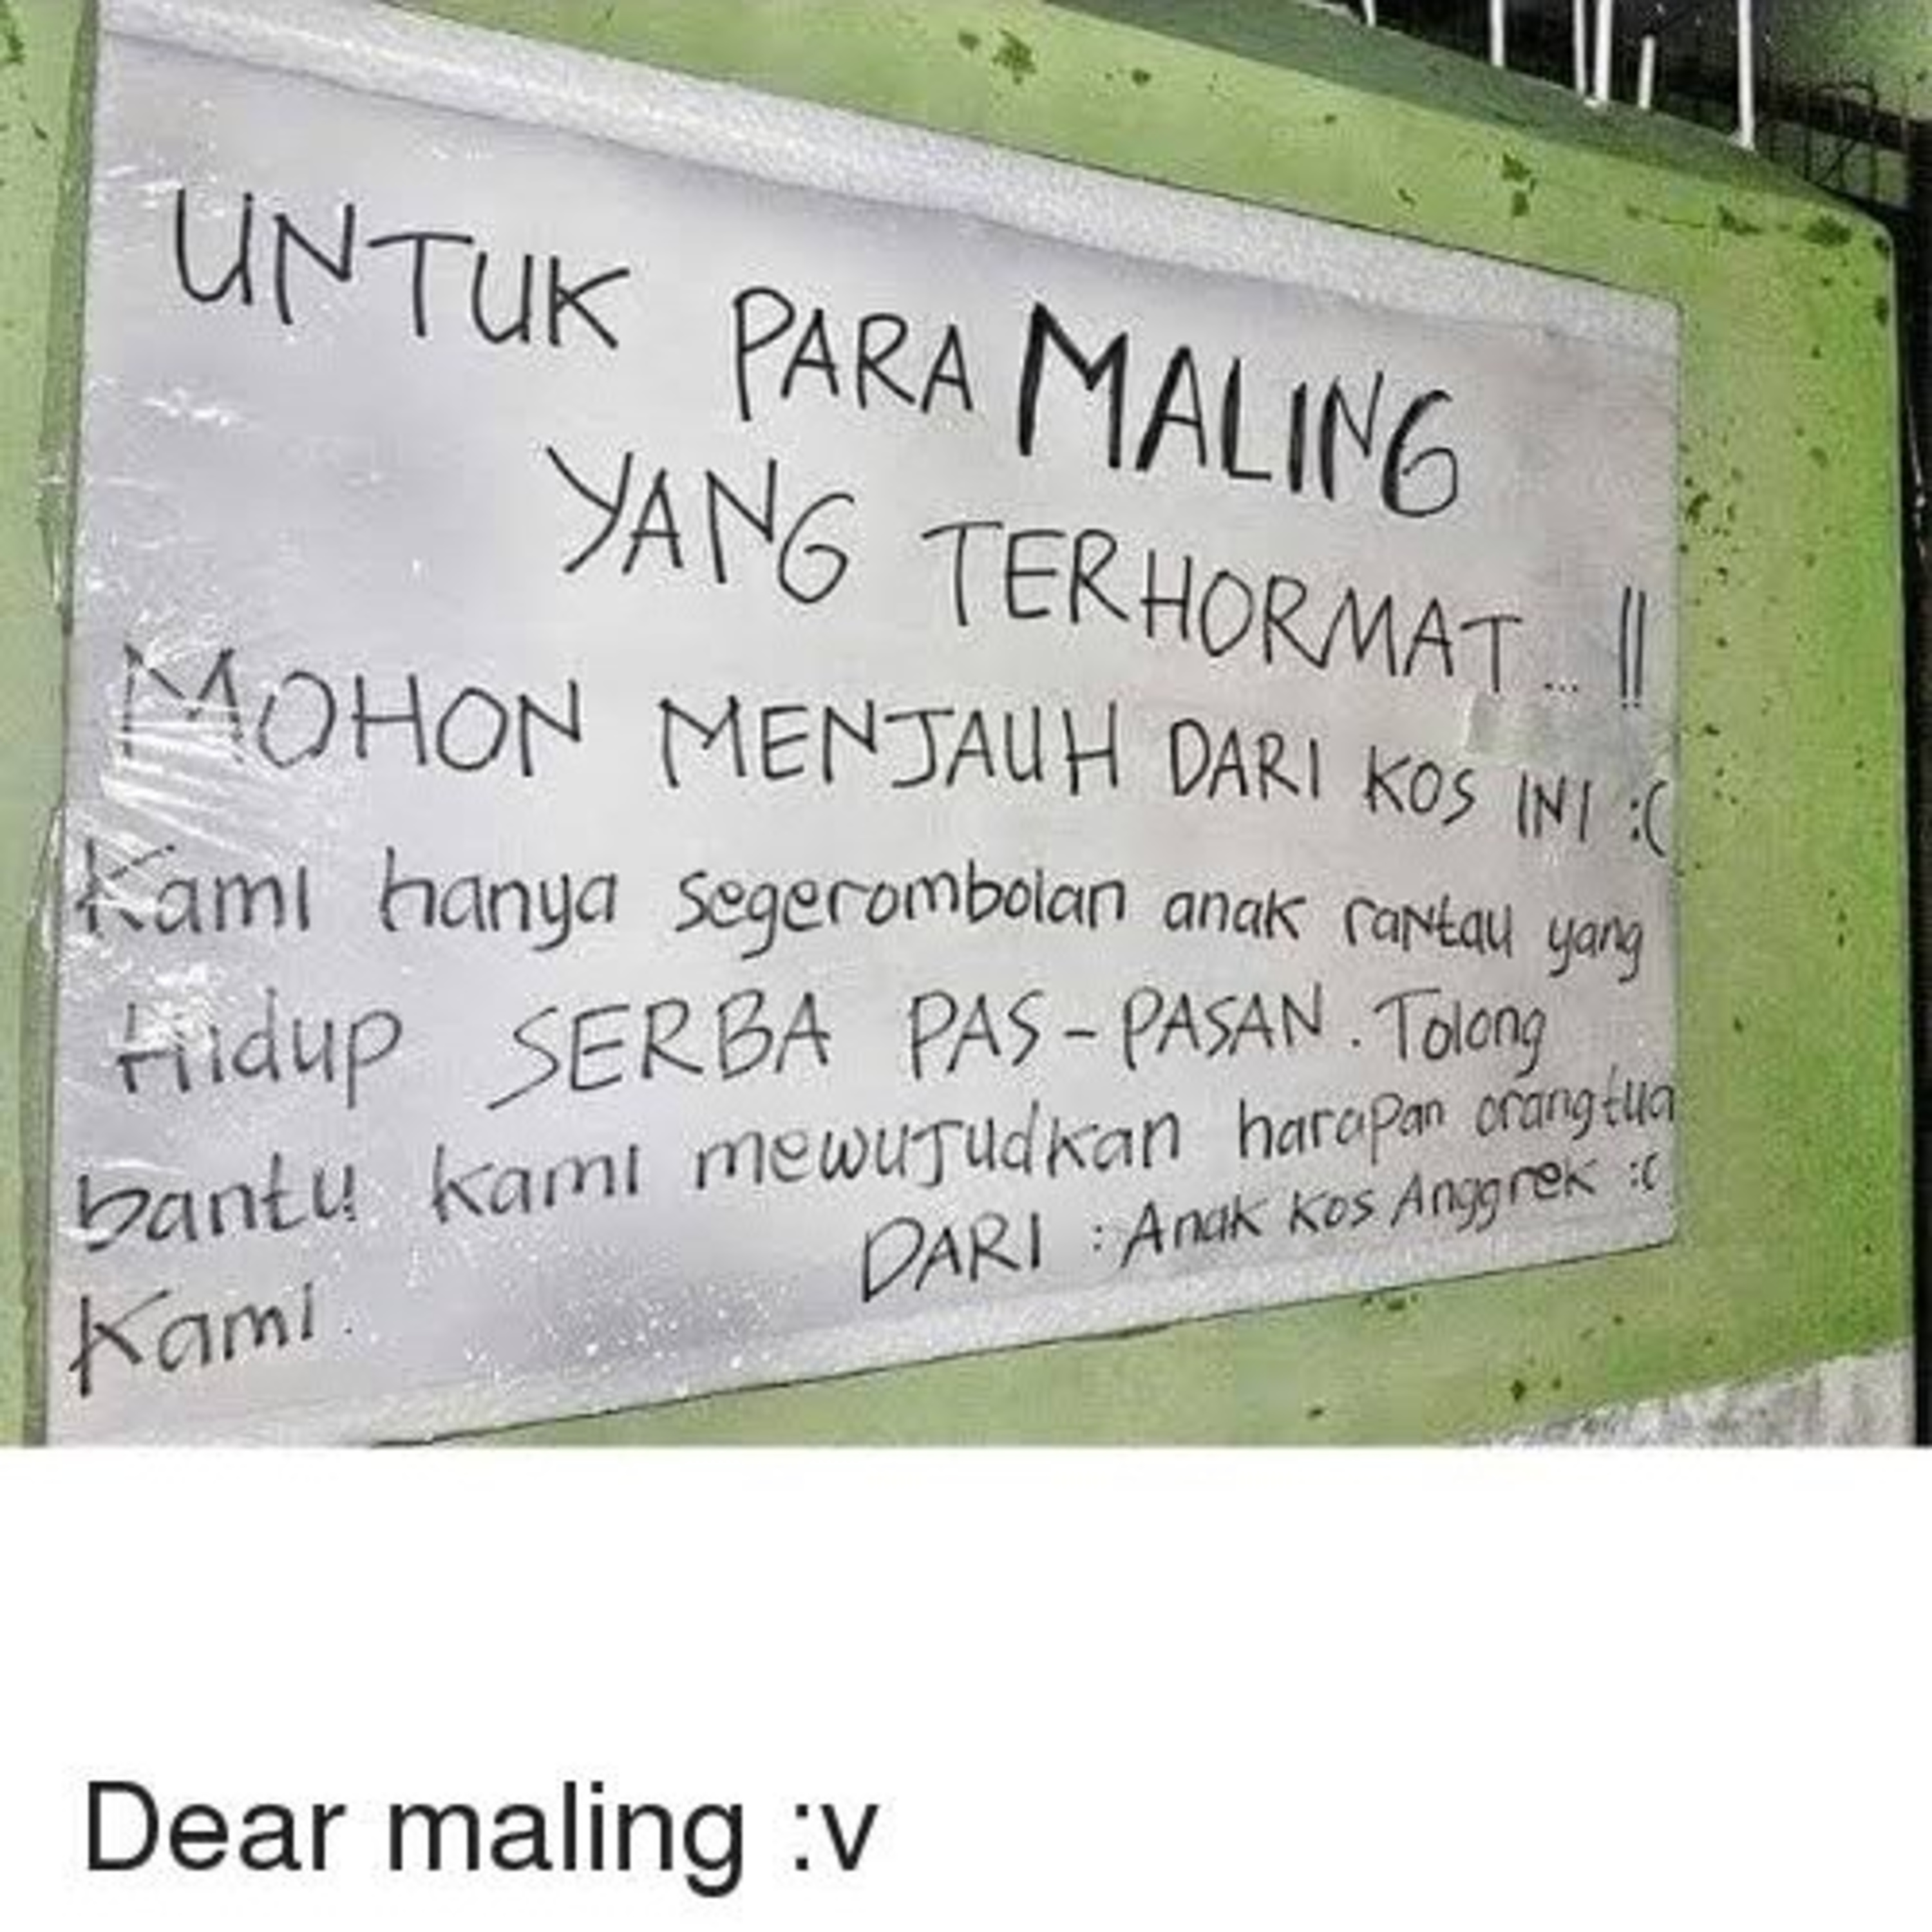 UNTUK PARA MALING
YANG TERHORMAT... !!
MOHON MENJAUH DARI KOS INI :(
Kami hanya segerombolan anak rantau yang
Hidup SERBA PAS-PASAN. Tolong
bantu kami mewujudkan harapan orangtua
Kami.
DARI : Anak Kos Anggrek :(
Dear maling :v